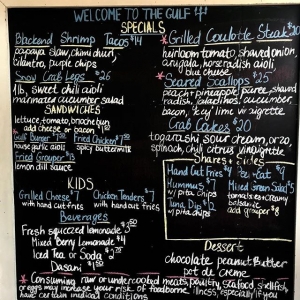 WELCOME TO THE GULF
SPECIALS
Blackened Shrimp Tacos $14
papaya slaw, chimichuri,
cilantro, purple chips
Snow Crab Legs $26
1 lb, sweet chili aioli
marinated cucumber salad
SANDWICHES
lettuce, tomato, brioche bun
add cheese or bacon
Fried Chicken
house garlic aioli
spicy buttermilk
Fried Grouper $13
lemon dill sauce
KIDS
Grilled Cheese $7
with hand cut fries
Chicken Tenders $7
with hand cut fries
Beverages
Fresh squeezed lemonade
Mixed Berry Lemonade $4
Iced Tea or Soda
Dasani
*Grilled Coulotte Steak $20
heirloom tomato, shaved onion
arugula, horseradish aioli
blue cheese
*Seared Scallops $25
peach pineapple puree, shaved
radish, cucumber,
bacon, "key" lime vinaigrette
Crab Cakes $20
togarashi sour cream, orzo,
spinach, chili citrus vinaigrette
Shares & Sides
Hand Cut Fries $4
Hummus $7
w/ pita chips
Tuna Dip
w/ pita chips
Mixed Green Salad $5
balsamic
add grouper $8
Dessert
chocolate peanut butter
pot de creme
*Consuming raw or undercooked meats, poultry, seafood, shellfish,
or eggs may increase your risk of foodborne illness, especially if you
have certain medical conditions